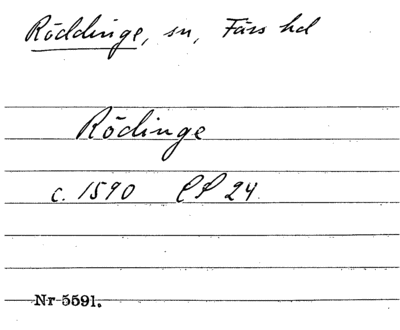 Röddinge, sn, Färs hd
Rödinge
c. 1590 LP 24
Nr 5591.